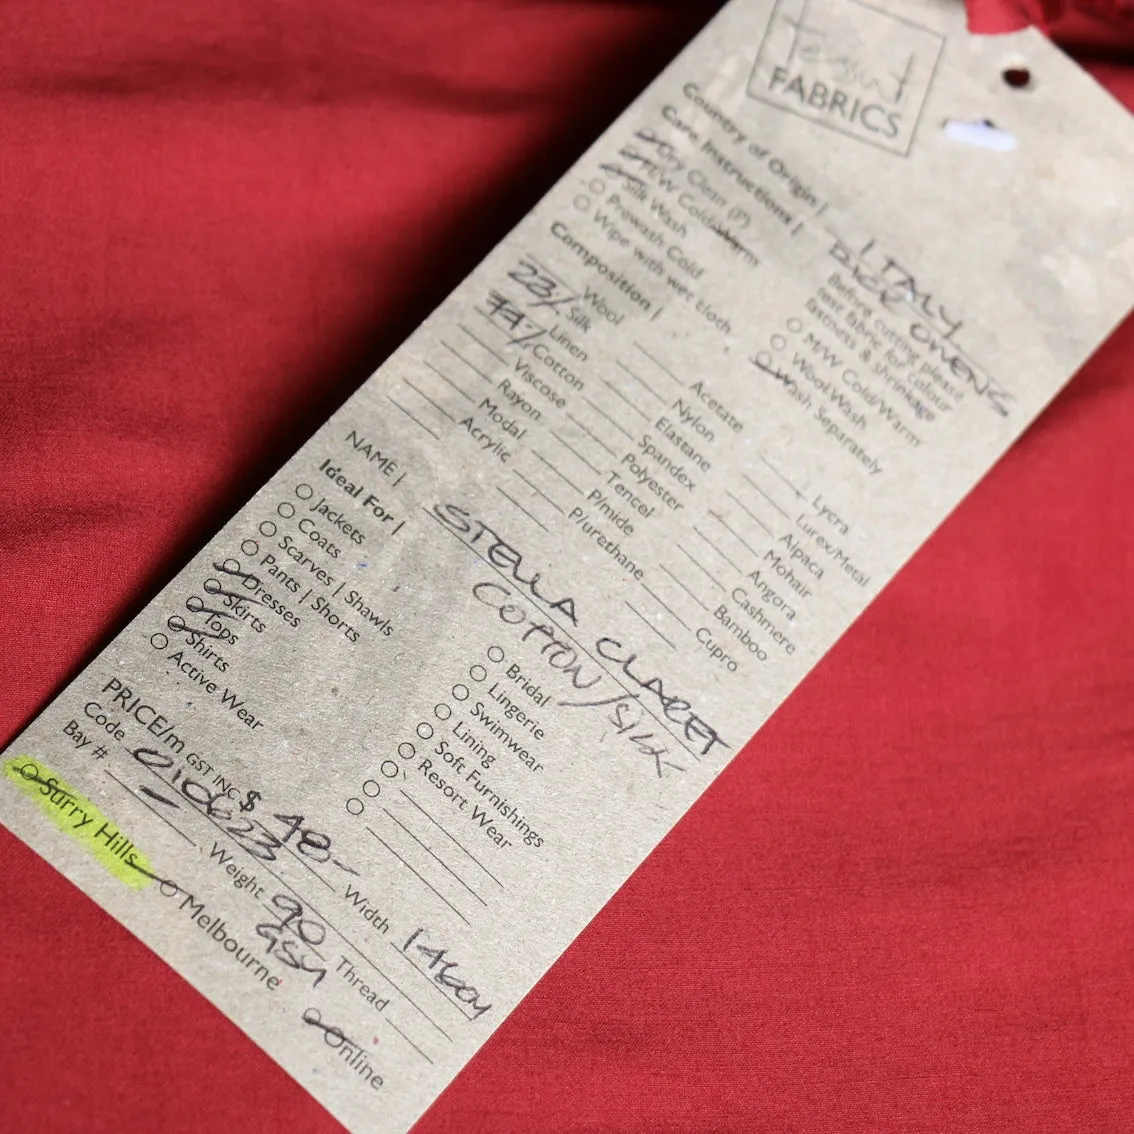 Tessuti
FABRICS
Country of Origin | ITALY
RICK OWENS
Care Instructions | Before cutting please
test fabric for colour
fastness & shrinkage
Dry Clean (P)
H/W Cold/Warm
Silk Wash
Prewash Cold
Wipe with wet cloth
M/W Cold/Warm
Wool Wash
Wash Separately
Composition |
Wool
23% Silk
Linen
77% Cotton
Viscose
Rayon
Modal
Acrylic
Acetate
Nylon
Elastane
Spandex
Polyester
Tencel
P/mide
P/urethane
Lycra
Lurex/Metal
Alpaca
Mohair
Angora
Cashmere
Bamboo
Cupro
NAME | STELLA CLARET
COTTON/SILK
Ideal For |
Jackets
Coats
Scarves | Shawls
Pants | Shorts
Dresses
Skirts
Tops
Shirts
Active Wear
Bridal
Lingerie
Swimwear
Lining
Soft Furnishings
Resort Wear
PRICE/m GST INC $ 48- Width 146cm
Code 010623 Weight 90 GSM Thread
Bay #
Surry Hills
Melbourne
Online